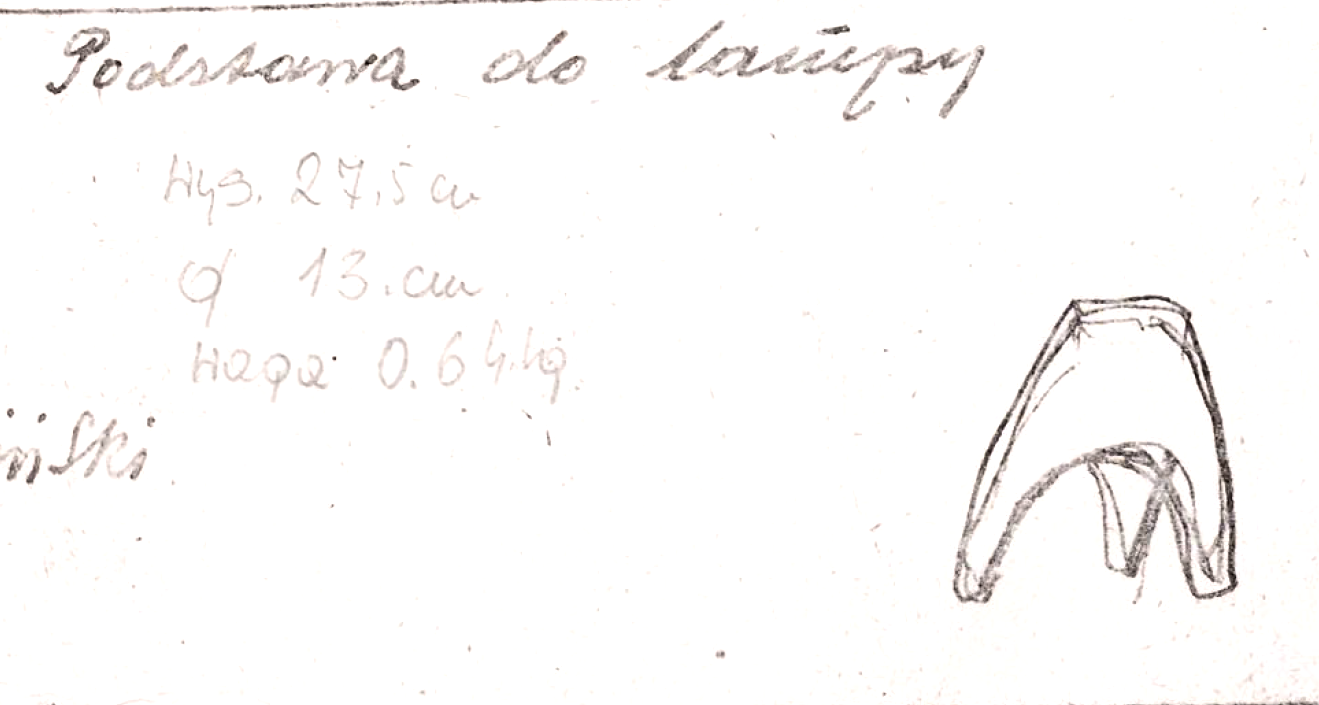 Podstawa do lampy
Wys. 27,5 cm
Ø 13. cm
Waga 0.64 kg.
iński